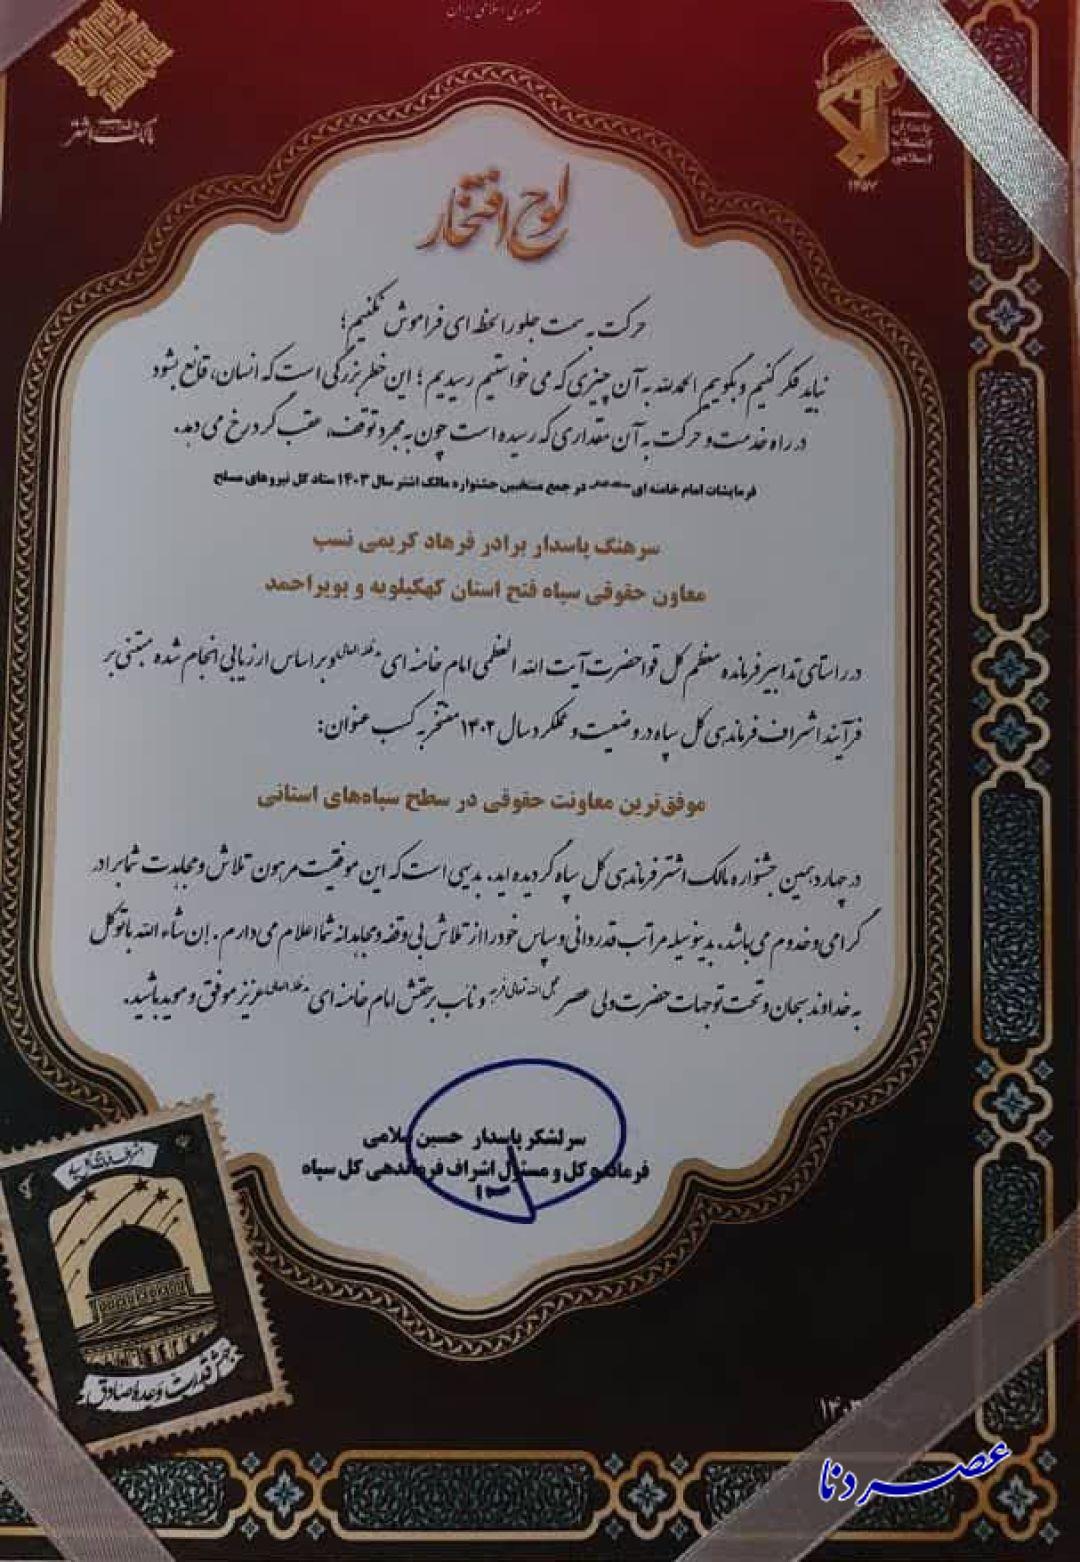 جمهوری اسلامی ایران
مالک اشتر
سپاه پاسداران انقلاب اسلامی
۱۳۵۷
لوح افتخار
حرکت به سمت جلو را لحظه ای فراموش نکنیم؛
نباید فکر کنیم و بگوییم الحمدلله به آن چیزی که می خواستیم رسیدیم؛ این خطر بزرگی است که انسان، قانع بشود
در راه خدمت و حرکت به آن مقداری که رسیده است چون به مجرد توقف، عقب گرد رخ می دهد.
فرمایشات امام خامنه ای در جمع منتخبین جشنواره مالک اشتر سال ۱۴۰۳ ستاد کل نیروهای مسلح
سرهنگ پاسدار برادر فرهاد کریمی نسب
معاون حقوقی سپاه فتح استان کهکیلویه و بویراحمد
در راستای تدابیر فرمانده معظم کل قوا حضرت آیت الله العظمی امام خامنه ای مدظله العالی و بر اساس ارزیابی انجام شده مبتنی بر
فرآیند اشراف فرماندهی کل سپاه در وضعیت و عملکرد سال ۱۴۰۲ مفتخر به کسب عنوان:
موفق‌ترین معاونت حقوقی در سطح سپاه‌های استانی
در چهاردهمین جشنواره مالک اشتر فرماندهی کل سپاه گردیده اید، بدیهی است که این موفقیت مرهون تلاش و مجاهدت شما برادر
گرامی و خدوم می باشد. بدینوسیله مراتب قدردانی و سپاس خود را از تلاش بی وقفه و مجاهدانه شما اعلام می دارم. إن شاء الله با توکل
به خداوند سبحان و تحت توجهات حضرت ولی عصر عجل الله تعالی فرجه و نائب برحقش امام خامنه ای مدظله العالی عزیز موفق و موید باشید.
سرلشکر پاسدار حسین سلامی
فرمانده کل و مسئول اشراف فرماندهی کل سپاه
قدرت وعده صادق
عصر دنا